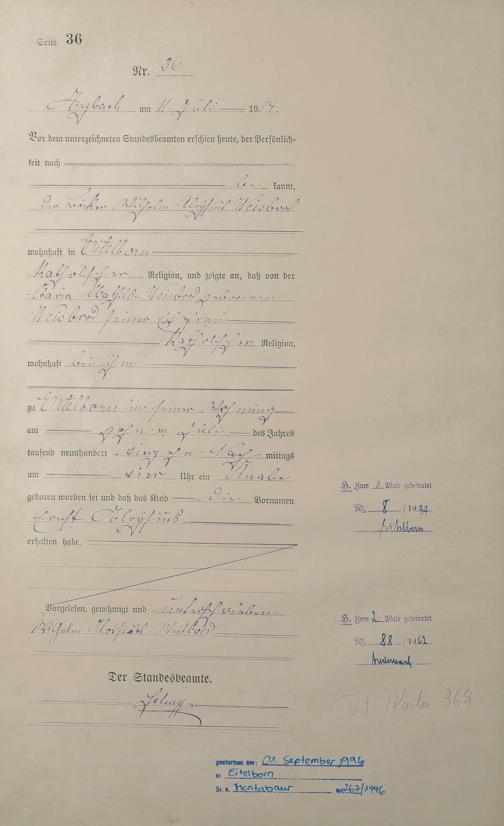 Seite 36
Nr. 36
Arzbach am 11. Juli 1914.
Vor dem unterzeichneten Standesbeamten erschien heute, der Persönlich-
keit nach
be kannt,
der Bäcker Wilhelm Aloysius Weisbrod
wohnhaft in Eitelborn
katholischer Religion, und zeigte an, daß von der
Maria Mathilde Weisbrod geborenen
Weisbrod seiner Ehefrau
katholischer Religion,
wohnhaft bei ihm
zu Eitelborn in seiner Wohnung
am zehn ten Juli des Jahres
tausend neunhundert vierzehn Nach mittags
um vier Uhr ein Knabe
geboren worden sei und daß das Kind die Vornamen
Ernst Aloysius
erhalten habe.
Vorgelesen, genehmigt und unterschrieben
Wilhelm Aloisius Weisbrod
Der Standesbeamte.
H. Zum 1 Male geheiratet
Nr. 8 / 1939
Eitelborn
H. Zum 2. Male geheiratet
Nr. 88 / 1962
Andernach
362
gestorben am: 01. September 1996
in Eitelborn
St. A. Montabaur Nr. 267/1996